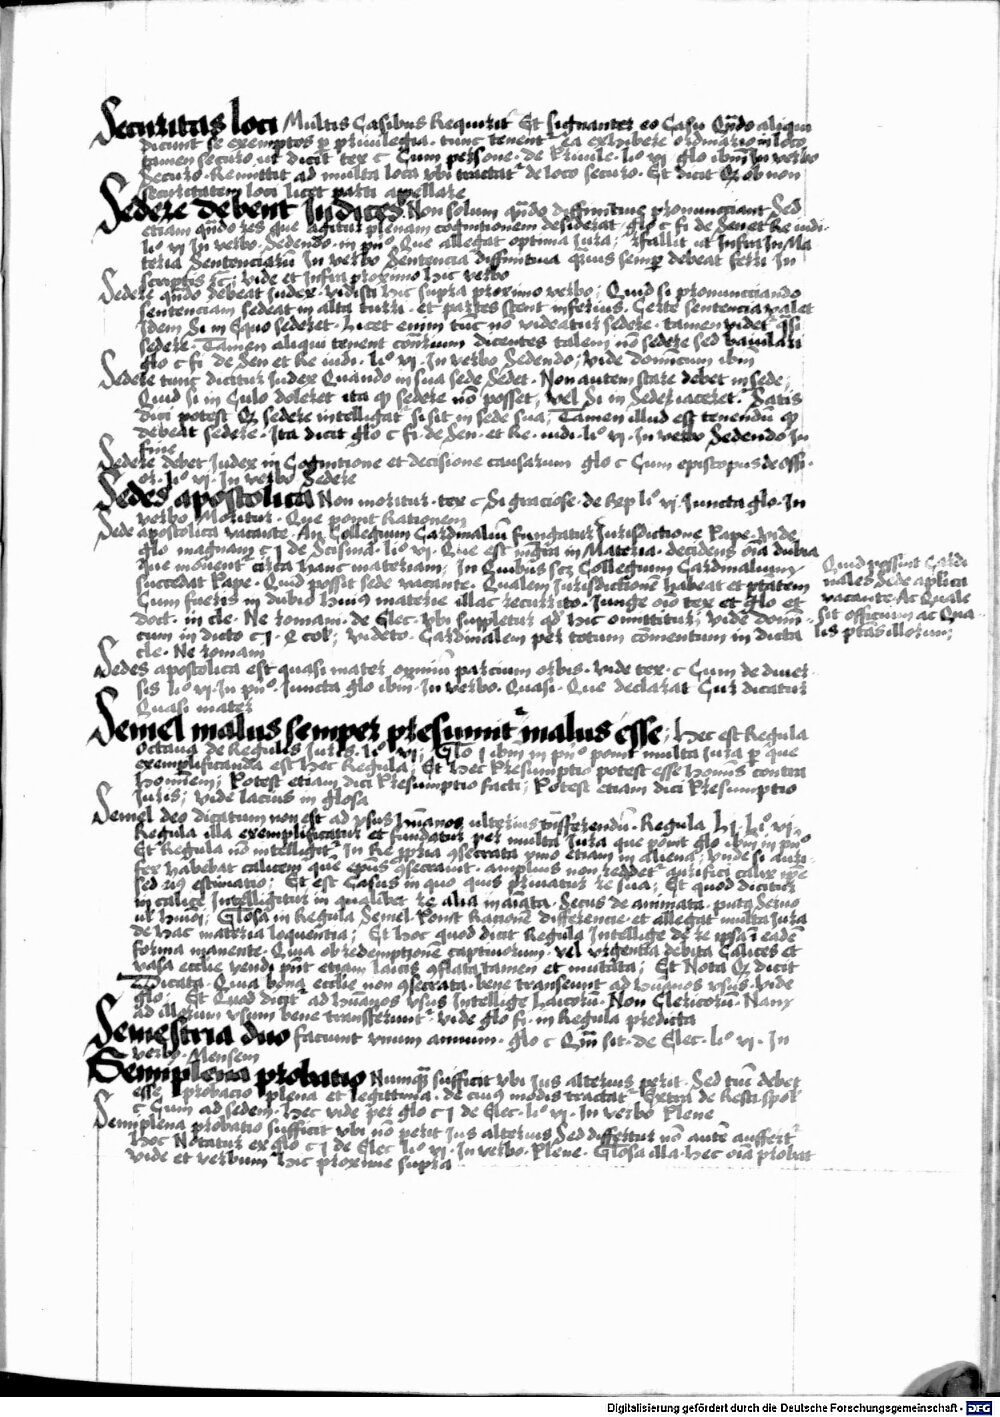 Securitas loci Multis Casibus Requirit Et Signanter eo Casu Qndo aliqui
dicunt se exemptos p privilegia. tunc tenent ea exhibere ordinario in loco
tamen securo. ut dicit tex c Cum persone. de Privile. li° vi glo ibm In verbo
Securo. Remittit ad multa loca ubi tractat de loco securo. Et dicit Q ob non
securitatem loci licet parti appellare
Sedere debent Judices Non solum qndo diffinitive pronunciant Sed
etiam qndo res que agitur plenam cognitionem desiderat. glo c fi de Sen et Re iudi.
li° vi In verbo. Sedendo. in pn° Que allegat optima Jura; fallit ut Infra In Ma
teria Sentenciarū In verbo Sentencia diffinitiva quis semp debeat ferri In
scriptis &c; vide et Infra proximo hic verbo
Sedere qndo debeat Judex. vidisti hic supra proximo verbo; Quid si pronunciando
sentenciam sedeat in alta turri. et partes stent inferius. Certe sentencia valet
Idem Si in Equo sederet. Licet enim tūc nō videatur sedere. tamen videt qsi
sedere. Tamen aliqui tenent contrium dicentes talem nō sedere sed baiulari
glo c fi de Sen et Re iudi. li° vi. In verbo Sedendo; vide dominicum ibm
Sedere tunc dicitur Judex Quando in sua sede Sedet. Non autem stare debet in sede;
Quid si in Culo doleret ita q sedere nō posset, vel Si in Sede iaceret. Satis
dici potest Q sedere intelligat si sit in sede sua; Tamen illud est tenendū q
debeat sedere. Ita dicit glo c fi. de Sen. et Re. iudi. li° vi. In verbo Sedendo In
fine
Sedere debet Judex in Cognitione et decisione causarum glo c Cum episcopus de offi.
or. li° vi. In verbo Sedere
Sedes apostolica Non moritur. tex c Si graciose. de Rep li° vi Juncta glo. In
verbo Moritur. Que ponit Rationem
Sede apostolica vacante. An Collegium Cardinaliū fungatur Jurisdictione Pape. vide
glo magnam c j de Scisma. li° vi. Que est in Materia. decidens oīa dubia
que movent circa hanc materiam; In Quibus scz Collegium Cardinalium
succedat Pape. Quid possit sede vacante. Qualem Jurisdictionē habeat et ptatem
Cum fueris in dubio huiꝯ materie illac recurrito. Junge oīo tex et glo et
doct. in cle. Ne romani. de Elec. ubi suppletur ad hic omittitur; vide domi
cum in dicto c j. Q col; videto. Cardinalem per totum comentum in dicta
cle. Ne romani
Quid possint Cardi
nales Sede aplica
vacante. Ac Quale
sit officium ac Qua
lis ptas illorum;
Sedes apostolica est quasi mater omniū parcium orbis. vide tex. c Cum de diver
sis li° vi. In pn°. Juncta glo ibm. In verbo. Quasi. Que declarat Cur dicatur
Quasi mater
Semel malus semper presumit malus esse; Hec est Regula
octava de Regulis Juris. li° vi; Glo j ibm in pn° ponit multa Jura p que
exemplificanda est hec Regula; Et hec Presumptio potest esse hominis contra
hominem; Potest etiam dici Presumptio facti; Potest etiam dici Presumptio
Juris; vide lacius in glosa
Semel deo dicatum non est ad usus humanos ulterius transferendū. Regula Li. li° vi.
Regula illa exemplificatur et fundatur per multa Jura que ponit glo ibm in pn°
Et Regula nō intelligit In Re ppria ꝯsecrata ymo etiam in aliena; unde si auri
fex habebat calicem quē epūs ꝯsecravit. amplius non reddet aurifici calix ipse
sed eiꝯ estimatio; Et est Casus in quo quis privatur re sua; Et quod dicitur
in calice Intelligitur in qualibet re alia inaiata. Secus de animata. puta Servo
ul hmōi; Glosa in Regula Semel Ponit Rationē differencie. et allegat multa Jura
de hac materia loquentia; Et hoc quod dicit Regula Intellige de re ipsa ī eadē
forma manente. Quia ob redemptionē captivorum. vel urgentia debita Calices et
vasa ecclie vendi pnt etiam laicis ꝯflata tamen et mutata; Et Nota Q dicit
Dicata. Quia bona ecclie non ꝯsecrata. bene transeunt ad humanos usus. vide
glo; Et Quod dicit ad humanos usus Intellige Laicorū. Non Clericorū. Nam
ad illorum usum bene transferunt. vide glo fi. in Regula predicta
Semestria duo faciunt unum annum. glo c Qm sit. de Elec. li° vi. In
verbo. Mensem
Semiplena probatio Numq sufficit ubi Jus alterius perit. Sed tūc debet
esse probacio plena et legittima. de cuiꝯ modis tractat Extra de Resti. spol
c Cum ad sedem. Hec vide per glo c j de Elec. li° vi. In verbo Plene
Semiplena probatio sufficit ubi nō perit Jus alterius Sed differtur nō autē auffert
Hoc Notatur ex glo c j de Elec li° vi. In verbo. Plene. Glosa illa. hec oīa probat
vide et verbum hic proxime supra
Digitalisierung gefördert durch die Deutsche Forschungsgemeinschaft - DFG